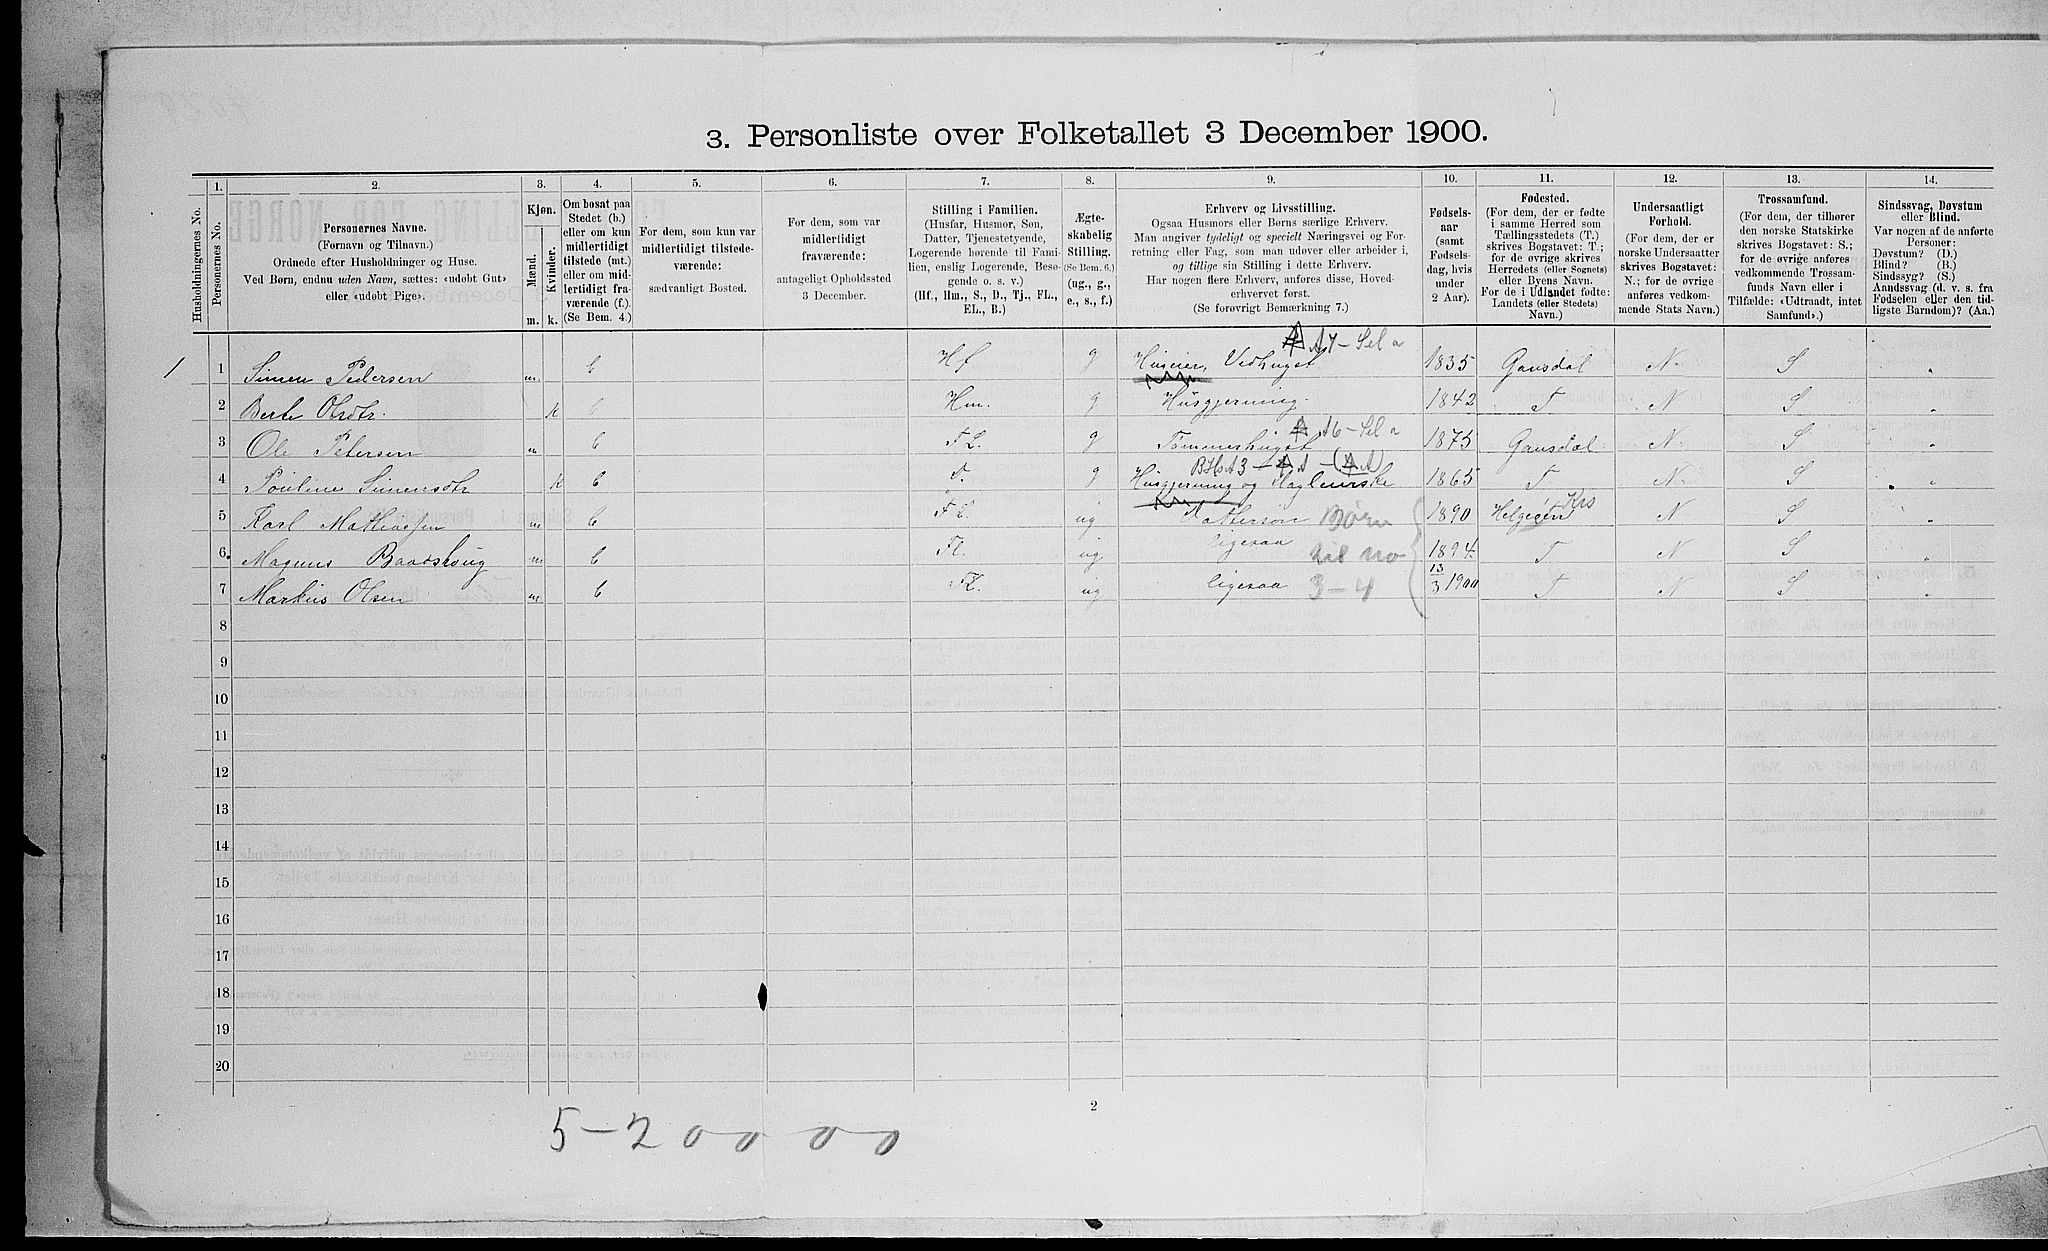 3. Personliste over Folketallet 3 December 1900.
1. 2. 3. 4. 5. 6. 7. 8. 9. 10. 11. 12. 13. 14.
Husholdningernes No.
Personernes No.
Personernes Navne.
(Fornavn og Tilnavn.)
Ordnede efter Husholdninger og Huse.
Ved Børn, endnu uden Navn, sættes: «udøbt Gut»
eller «udøbt Pige».
Kjøn.
Mænd.
Kvinder.
m. k.
Om bosat paa
Stedet (b.)
eller om kun
midlertidigt
tilstede (mt.)
eller om mid-
lertidigt fra-
værende (f.)
(Se Bem. 4.)
For dem, som kun var
midlertidigt tilstede-
værende:
sædvanligt Bosted.
For dem, som var
midlertidigt
fraværende:
antageligt Opholdssted
3 December.
Stilling i Familien.
(Husfar, Husmor, Søn,
Datter, Tjenestetyende,
Logerende hørende til Fami-
lien, enslig Logerende, Besø-
gende o. s. v.)
(Hf., Hm., S., D., Tj., FL.,
EL., B.)
Ægte-
skabelig
Stilling.
(Se Bem. 6.)
(ug., g.,
e., s., f.)
Erhverv og Livsstilling.
Ogsaa Husmors eller Børns særlige Erhverv.
Man angiver tydeligt og specielt Næringsvei og For-
retning eller Fag, som man udøver eller arbeider i,
og tillige sin Stilling i dette Erhverv.
Har nogen flere Erhverv, anføres disse, Hoved-
erhvervet først.
(Se forøvrigt Bemærkning 7.)
Fødsels-
aar
(samt
Fødsels-
dag, hvis
under
2 Aar).
Fødested.
(For dem, der er fødte
i samme Herred som
Tællingsstedets (T.)
skrives Bogstavet: T.;
for de øvrige skrives
Herredets (eller Sognets)
eller Byens Navn.
For de i Udlandet fødte:
Landets (eller Stedets)
Navn.)
Undersaatligt
Forhold.
(For dem, der er
norske Undersaatter
skrives Bogstavet:
N.; for de øvrige
anføres vedkom-
mende Stats Navn.)
Trossamfund.
(For dem, der tilhører
den norske Statskirke
skrives Bogstavet: S.;
for de øvrige anføres
vedkommende Trossam-
funds Navn eller i
Tilfælde: «Udtraadt, intet
Samfund».)
Sindssvag, Døvstum
eller Blind.
Var nogen af de anførte
Personer:
Døvstum? (D.)
Blind? (B.)
Sindssyg? (S.)
Aandssvag (d. v. s. fra
Fødselen eller den tid-
ligste Barndom)? (Aa.)
A7 - Sel a
1 1 Simen Pedersen m. b Hf g Huseier, Vedhugst 1835 Gausdal N. S "
2 Berte Olsdtr. k b Hm. g Husgjerning. 1842 T N S "
A6 - Sel a
3 Ole Petersen m b FL. g Tømmerhugst 1875 Gausdal N. S "
4 Pouline Simensdtr k b D. g Husgjerning og 1865 T N. S "
5 Karl Mathiesen m b FL. ug Dattersøn Børn 1890 Helgøen Krs N S "
6. Magnus Baadshoug m b FL. ug ligesaa til no 1894. T N S "
7 Markus Olsen m b FL. ug ligesaa 3-4 13/3 1900 T N S "
8
9
10
11
12
13
14
15
16
17
18
19
20
2
5-20000